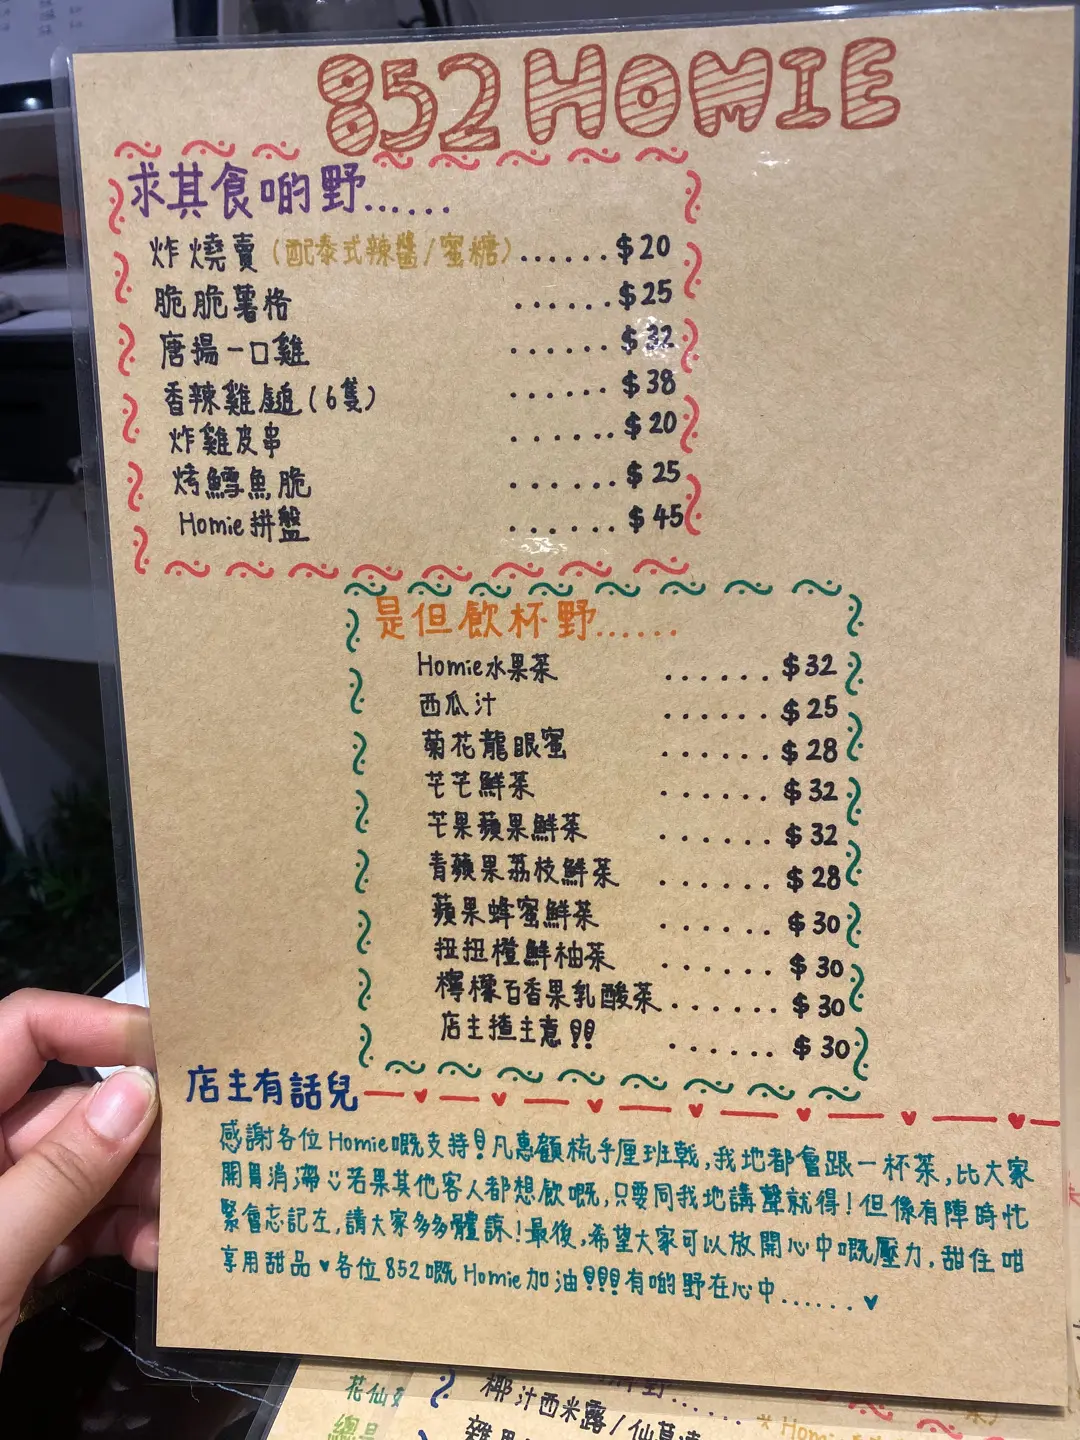 852 HOMIE
求其食啲野......
炸燒賣（配泰式辣醬/蜜糖）......$20
脆脆薯格 ......$25
唐揚一口雞 ......$32
香辣雞鎚（6隻） ......$38
炸雞皮串 ......$20
烤鱈魚脆 ......$25
Homie拼盤 ......$45
是但飲杯野......
Homie水果茶 ......$32
西瓜汁 ......$25
菊花龍眼蜜 ......$28
芒芒鮮茶 ......$32
芒果蘋果鮮茶 ......$32
青蘋果荔枝鮮茶 ......$28
蘋果蜂蜜鮮茶 ......$30
扭扭橙鮮柚茶 ......$30
檸檬百香果乳酸茶......$30
店主揸主意!! ......$30
店主有話兒
感謝各位Homie嘅支持!凡惠顧梳乎厘班戟,我地都會跟一杯茶,比大家
開胃消滯 若果其他客人都想飲嘅,只要同我地講聲就得!但係有陣時忙
緊會忘記左,請大家多多體諒!最後,希望大家可以放開心中嘅壓力,甜住咁
享用甜品♥各位852嘅Homie加油!!!!有啲野在心中......♥
花仙
椰汁西米露/仙草
總
雜果
* Homie